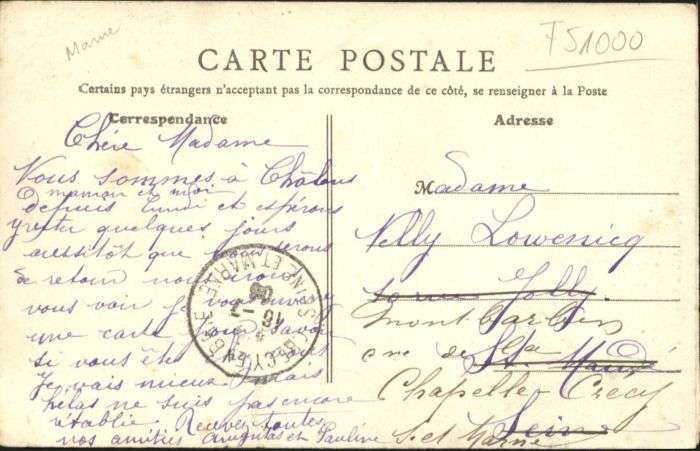 Marne
F51000
CARTE POSTALE
Certains pays étrangers n'acceptant pas la correspondance de ce côté, se renseigner à la Poste
Correspondance
Chère Madame
Nous sommes à Châlons
maman et moi
depuis lundi et espérons
y rester quelques jours
aussitôt que nous serons
de retour nous irons
vous voir je vous enverrai
une carte pour savoir
si vous êtes
Je vais mieux mais
hélas ne suis pas encore
rétablie. Recevez toutes
nos amitiés et Pauline
Adresse
Madame
Nelly Lowenicq
10 rue Jolly
Mont Barbin
cne de La
St Mandé
Chapelle Crecy
Seine
S. et Marne
CRECY
SEINE ET MARNE